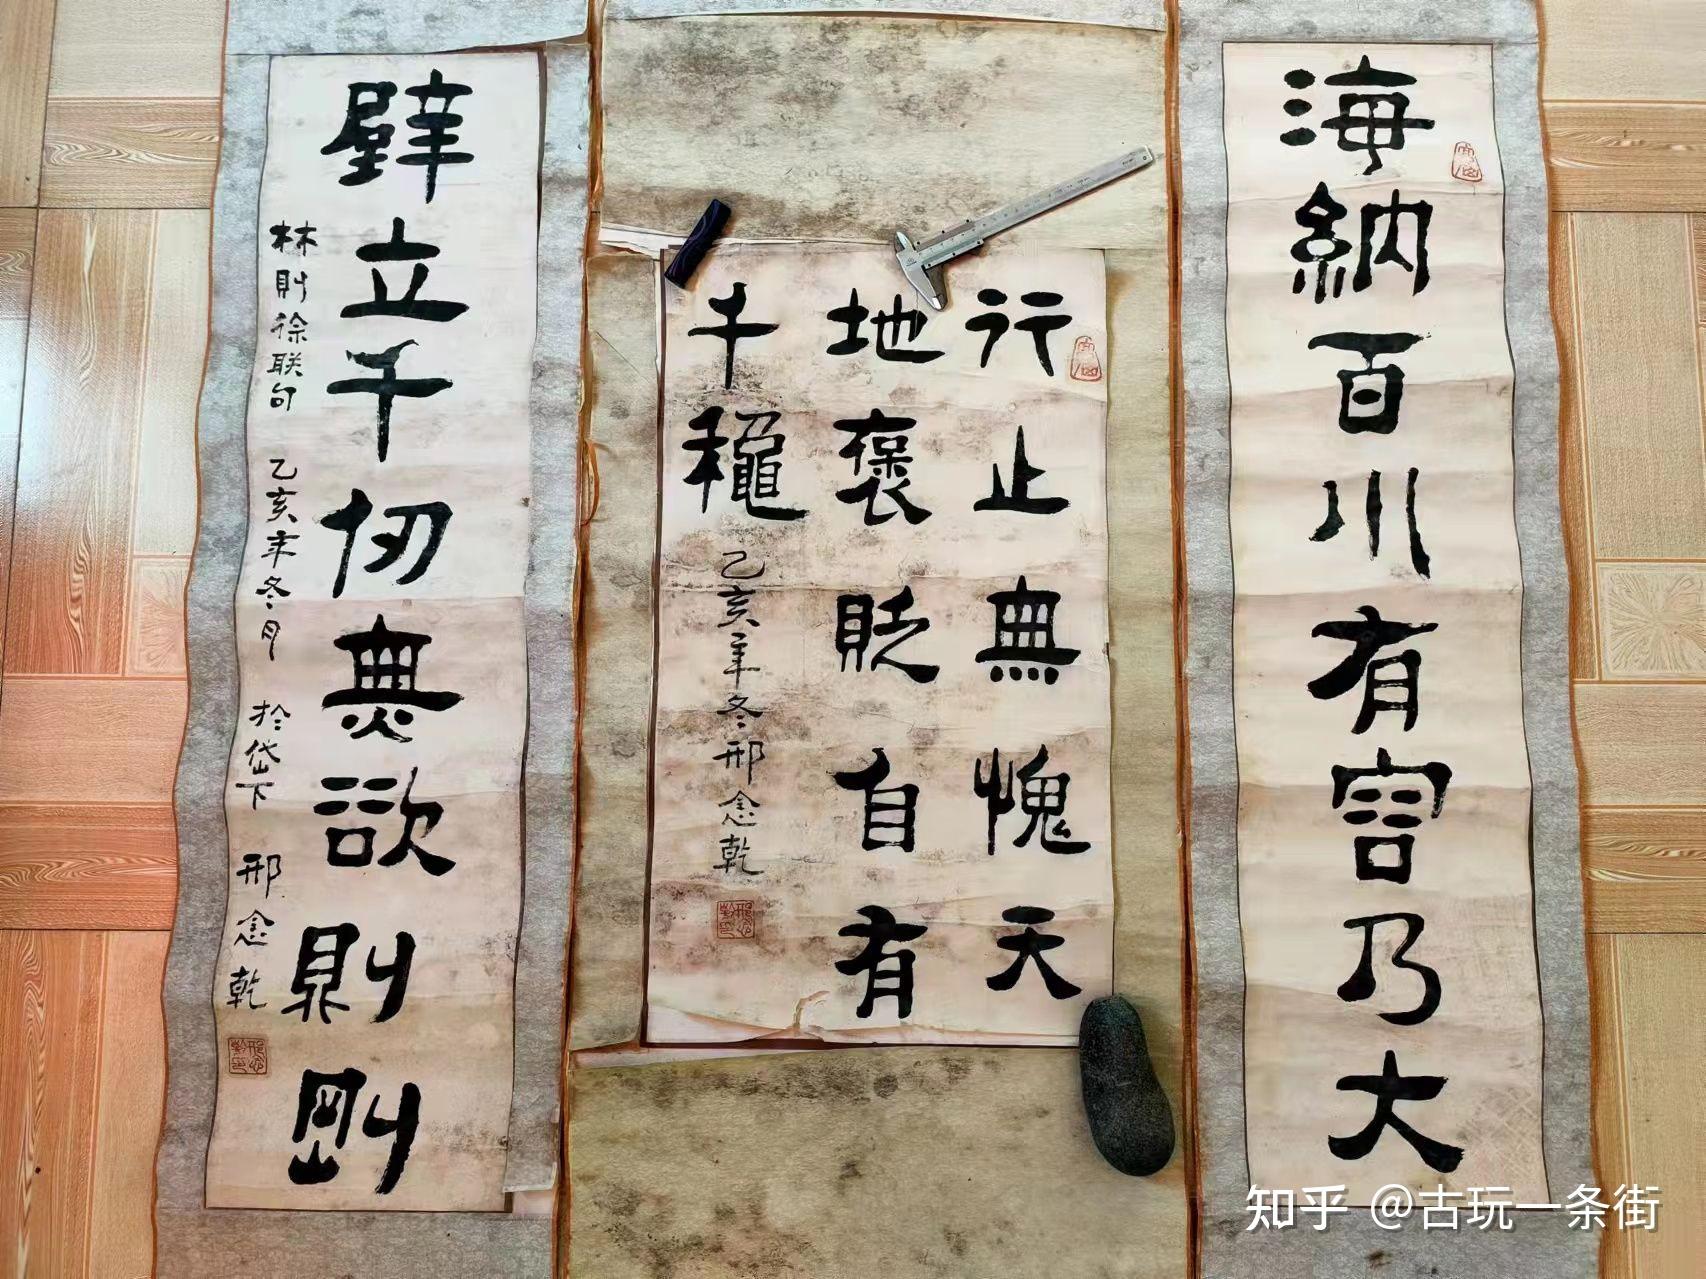 海納百川有容乃大
行止無愧天
地褒貶自有
千穐
乙亥年冬邢念乾
壁立千仞無欲則剛
林則徐联句 乙亥年冬月 於岱下 邢念乾
知乎 @古玩一条街